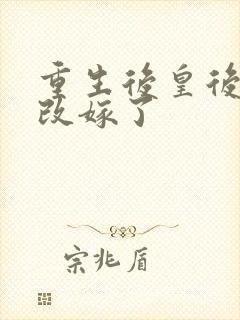 重生後皇後
改嫁了
宗兆盾